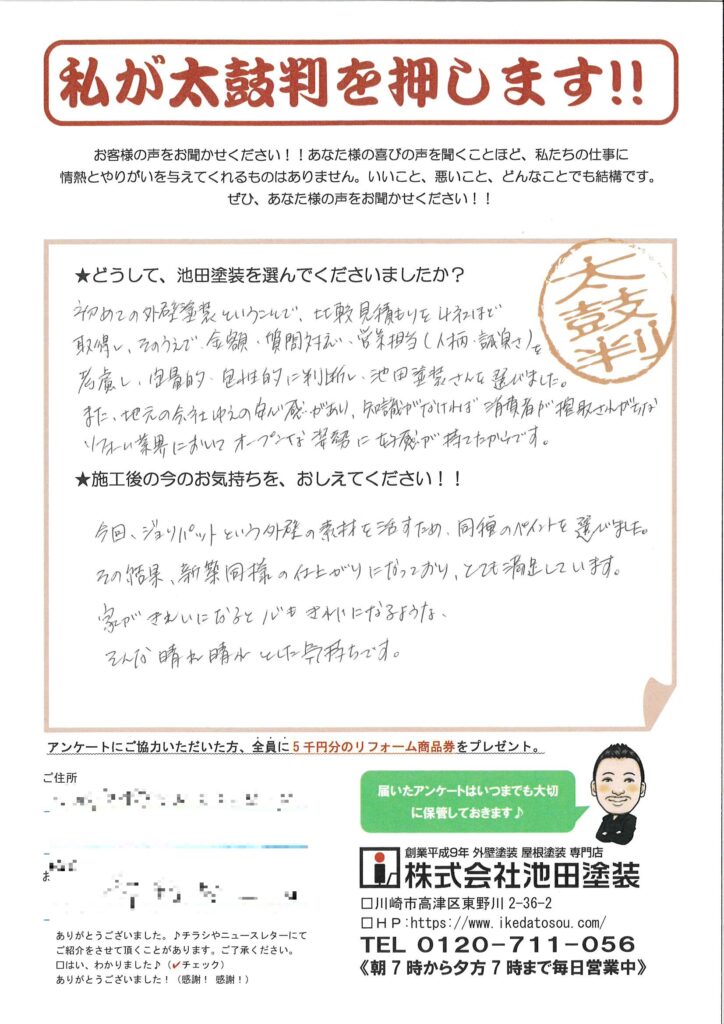 私が太鼓判を押します!!
お客様の声をお聞かせください！！あなた様の喜びの声を聞くことほど、私たちの仕事に
情熱とやりがいを与えてくれるものはありません。いいこと、悪いこと、どんなことでも結構です。
ぜひ、あなた様の声をお聞かせください！！
太鼓判
★どうして、池田塗装を選んでくださいましたか？
初めての外壁塗装ということで、比較見積もりを4社ほど
取得し、そのうえで、金額・質問対応・営業担当(人柄・誠実さ)を
考慮し、定量的・定性的に判断し、池田塗装さんを選びました。
また、地元の会社ゆえの安心感があり、知識がなければ消費者が搾取されがちな
リフォーム業界においてオープンな姿勢に好感が持てたからです。
★施工後の今のお気持ちを、おしえてください！！
今回、ジョリパットという外壁の素材を活すため、同種のペイントを選びました。
その結果、新築同様の仕上がりになっており、とても満足しています。
家がきれいになると心もきれいになるような、
そんな晴れ晴れとした気持ちです。
アンケートにご協力いただいた方、全員に5千円分のリフォーム商品券をプレゼント。
ご住所
お
届いたアンケートはいつまでも大切
に保管しておきます♪
創業平成9年 外壁塗装 屋根塗装 専門店
株式会社池田塗装
□川崎市高津区東野川 2-36-2
□HP:https://www.ikedatosou.com/
TEL 0120-711-056
《朝7時から夕方7時まで毎日営業中》
ありがとうございました。♪チラシやニュースレターにて
ご紹介をさせて頂くことがあります。ご了承ください。
□はい、わかりました♪（✔チェック）
ありがとうございました！（感謝！感謝！）